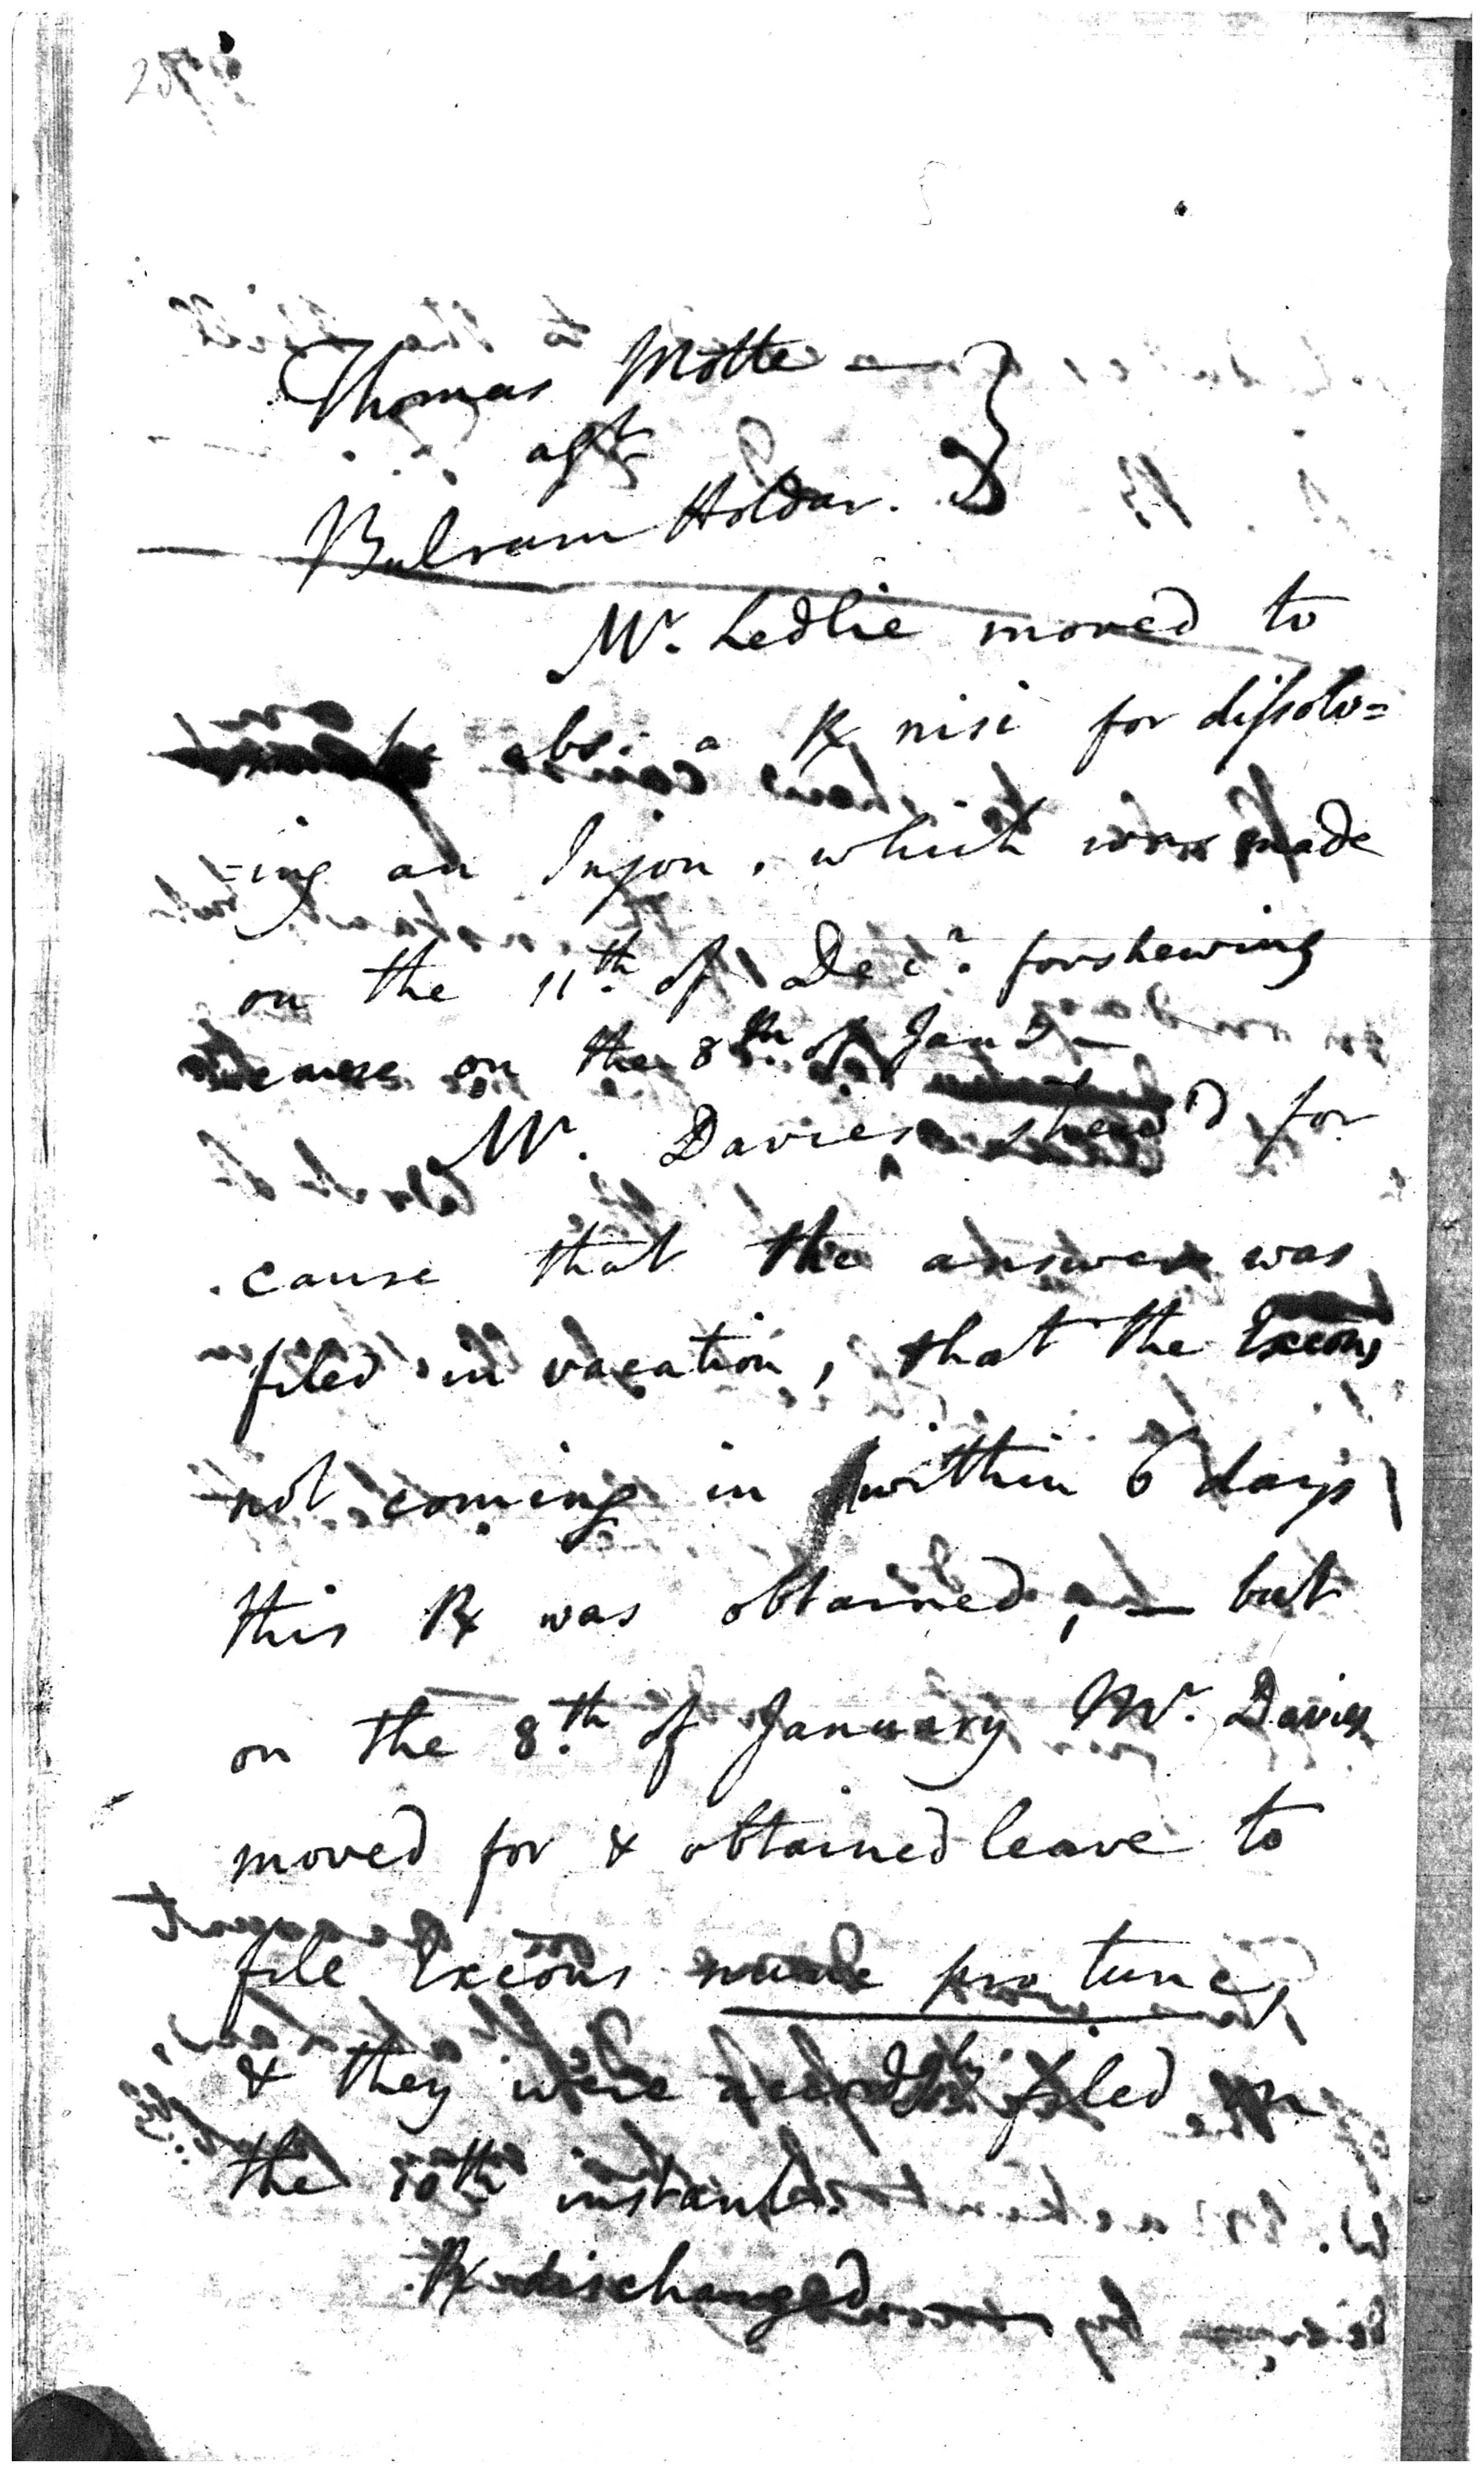 Thomas Motte —
agt
Bulram Holdar.
Mr. Ledlie moved to
abs: a Rx nisi for dissolv=
=ing an Injon, which was made
on the 11th of Decr. for shewing
cause on the 8th of Jany —
Mr. Davies shew'd for
cause that the answer was
filed in vacation, that the Excons
not coming in within 6 days
this Rx was obtained, — but
on the 8th of January Mr. Davies
moved for & obtained leave to
file Excons nunc pro tunc,
& they were accordgly filed on
the 10th instant.
Rx discharged